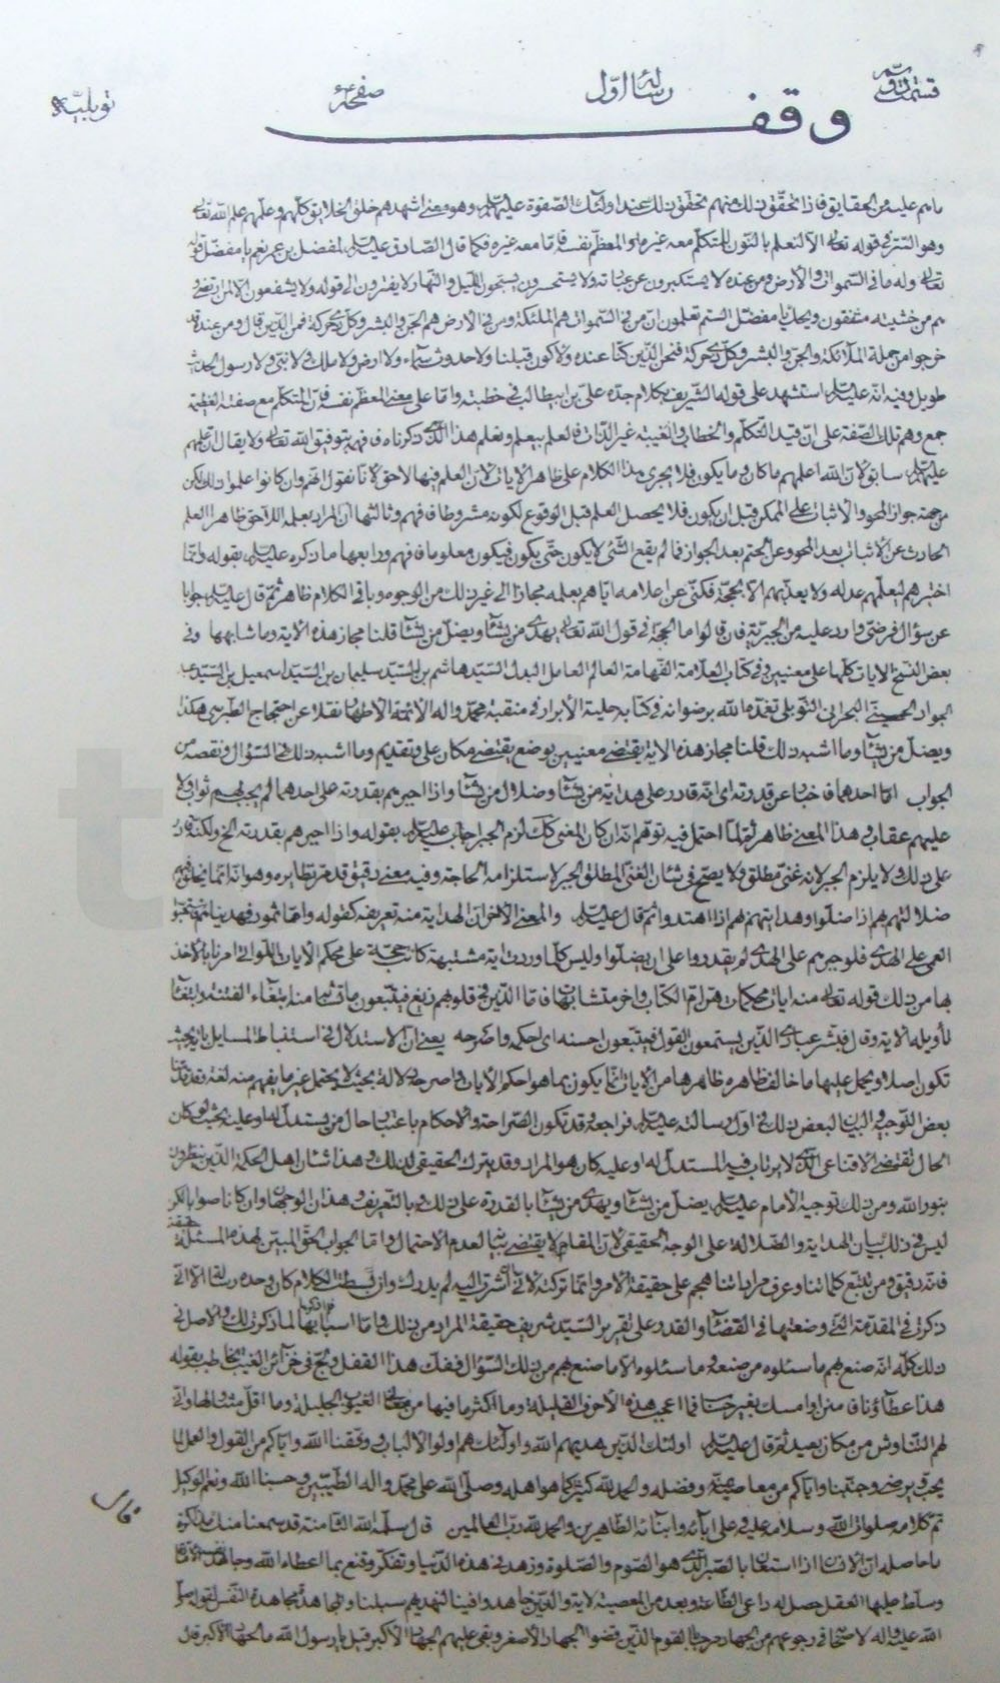 قسمت دوّم رسالهٔ اوّل صفحهٔ توبليّه
وقف
ما هم عليه من الحقايق فاذا تحقّق ذلك منهم تحقّق ذلك عند اولئك الصّفوة عليهم وهو معنى اشهدهم خلق الخلايق كلّهم وعلمهم علم الله تعالى
وهو السّر في قوله تعالى الّا لنعلم بالنّون للمتكلّم معه غيره او المعظّم نفسه فامّا معه غيره فكما قال الصّادق عليه السلم لمفضل بن عمر نعم يا مفضّل قوله
تعالى وله ما في السّموات والأرض ومن عنده لا يستكبرون عن عبادته ولا يستحسرون يسبّحون اللّيل والنّهار لا يفترون الى قوله ولا يشفعون الّا لمن ارتضى و
هم من خشيته مشفقون ويحك يا مفضّل الستم تعلمون انّ من في السّموات هم الملئكة ومن في الأرض هم الجنّ والبشر وكلّ ذي حركة فمن الّذين قال ومن عنده قد
خرجوا من جملة الملائكة والجنّ والبشر وكلّ ذي حركة فنحن الّذين كنّا عنده ولا كون قبلنا ولا حدوث سماء ولا ارض ولا ملك ولا نبيّ ولا رسول الحديث
طويل وفيه انّه عليه السلم استشهد على قوله الشّريف بكلام جدّه علي بن ابيطالب في خطبته وامّا على معنى المعظّم نفسه فانّ المتكلّم مع صفته العظيمة
جمع وهم تلك الصّفة على انّ قيد التكلّم والخطاب والغيبة غير الذّات فالعلم بيعلم ونعلم هذا الّذي ذكرناه فافهم بتوفيق الله تعالى ولا يقال انّ علمهم
عليهم السلم سابق لانّ الله اعلمهم ما كان وما يكون فلا يجري هذا الكلام على ظاهر الايات لانّ العلم فيها لاحق لانّا نقول انّهم وان كانوا علموا ذلك لكن
من جهة جواز المحو والاثبات على الممكن قبل ان يكون فلا يحصل العلم قبل الوقوع لكونه مشروطا فافهم وثالثها انّ المراد بعلمه اللاحق ظاهرا العلم
الحادث عن الاثبات بعد المحو وعن الحتم بعد الجواز فما لم يقع الشّئ لا يكون حتّى يكون فيكون معلوما فافهم ورابعها ما ذكره عليه السلم بقوله وانّما
اختبرهم ليعلمهم عدله ولا يعذّبهم الّا بحجّة فكنّى عن اعلامه ايّاهم بعلمه مجازا الى غير ذلك من الوجوه وباقي الكلام ظاهر ثمّ قال عليه السلم جوابا
عن سؤال فرضي وارد عليه من الجبريّة فان قالوا ما الحجّة في قول الله تعالى يهدي من يشاء ويضلّ من يشاء قلنا مجاز هذه الاية وما شابهها وفي
بعض النّسخ الايات كلّها على معنيين وفي كتاب العلّامة الفهّامة العالم العامل البدل السّيّد هاشم بن السّيّد سليمان بن السّيّد اسمعيل بن السّيّد عبد
الجواد الحسيني البحراني التّوبلي تغمّده الله برضوانه في كتابه حلية الأبرار في منقبة محمّد واله الائمّة الأطهار نقلا عن احتجاج الطّبرسي هكذا
ويضلّ من يشاء وما اشبه ذلك قلنا مجاز هذه الاية يقتضي معنيين بوضع يقتضي مكان على وتقديم وما اشبه ذلك في السّؤال ونقصه من
الجواب امّا احدهما فاخبار عن قدرته اي انّه قادر على هداية من يشاء وضلال من يشاء واذا اجبرهم بقدرته على احدهما لم يجب لهم ثواب ولا
عليهم عقاب في هذا المعنى ظاهر ثمّ لمّا احتمل فيه توهّم انّه ان كان المعنى كك لزم الجبر اجاب عليه السلم بقوله واذا اجبرهم بقدرته الخ ولكنّه قادر
على ذلك ولا يلزم الجبر لانّه غنيّ مطلق ولا يصحّ في شان الغنيّ المطلق الجبر لاستلزامه الحاجة وفيه معنى دقيق قد مرّ نظايره وهو انّه انّما يخلق فيهم
ضلالتهم بهم اذا ضلّوا وهدايتهم بهم اذا اهتدوا ثم قال عليه السلم والمعنى الاخر انّ الهداية منه تعريفه كقوله وامّا ثمود فهديناهم فاستحبّوا
العمى على الهدى فلو جبرهم على الهدى لم يقدروا على ان يضلّوا وليس كلّما وردت اية مشتبهة كانت حجّة على محكم الايات اللّواتي امرنا بالاخذ
بها من ذلك قوله تعالى منه ايات محكمات هنّ امّ الكتاب واخر متشابهات فامّا الّذين في قلوبهم زيغ فيتّبعون ما تشابه منه ابتغاء الفتنة وابتغاء
تأويله الاية وقال فبشّر عبادي الّذين يستمعون القول فيتّبعون احسنه اي احكمه واشرحه يعني انّ الاستدلال في استنباط المسايل
تكون اصلا ويحمل عليها ما خالف ظاهره ظاهرها من الايات انّما يكون بما هو احكم الايات واصرح دلالة بحيث لا يحتمل غير ما يفهم منه لغة وقد ذكرنا
بعض التّوجيه والبيان لبعض ذلك في اوّل رسالته عليه السلم فراجعه وقد تكون الصّراحة والاحكام باعتبار حال من يستدلّ له او عليه بحيث لو كان
الحال تقتضي الاقناعي الّذي لا يرتاب فيه المستدلّ له او عليه كان هو المراد وقد يترك الحقيقي لذلك وهذا شان اهل الحكمة الّذين ينظرون
بنور الله ومن ذلك توجيه الامام عليه السلم يضلّ من يشاء ويهدي من يشاء بالقدرة على ذلك وبالتّعريف وهذان الوجهان وان كانا صوابا لكن
ليس في ذلك بيان الهداية والضّلالة على الوجه الحقيقي لانّ المقام لا يقتضي بيانه لعدم الاحتمال وامّا الجواب الحقّ المبيّن لهذه المسئلة حقيقة
فانّه دقيق ومن تتبّع كلماتنا وعرف مراداتنا هجم على حقيقة الأمر وانّما تركته لانّي لو اشرت اليه لم يدرك وان بسطت الكلام كان وحده رسالة الّا انّي
ذكرت في المقدّمة الّتي وضعتها في القضاء والقدر على تقرير السّيّد شريف حقيقة المراد من ذلك وامّا اسبابها فراجعها لما ذكرت لك والاصل في
ذلك كلّه انّه صنع بهم ما سئلوه من صنعه وما سئلوه الّا ما صنع بهم من ذلك السّؤال ففكّ هذا القفل ولج في خزآئن الغيب المخاطب بقوله
هذا عطآؤنا فامنن او امسك بغير حساب فما اعجب هذه الأحرف القليلة وما اكثر ما فيها من معاني الغيوب الجليلة وما اقلّ مثالها وانّى
لهم التّناوش من مكان بعيد ثمّ قال عليه السلم اولئك الّذين هديهم الله واولئك هم اولوا الألباب وفّقنا الله وايّاكم من القول والعمل لما
يحبّ ويرضى وجنّبنا وايّاكم من معاصيه بمنّه وفضله والحمد لله كثيرا كما هو اهله وصلّى الله على محمّد واله الطّيّبين وحسبنا الله ونعم الوكيل
تمّ كلامه صلوات الله وسلامه عليه وعلى ابائه وابنائه الطّاهرين والحمد لله ربّ العالمين قال سلّمه الله الثّامنة قد سمعنا منك مذاكرة
ما حاصله انّ الانسان اذا استعان بالصّبر الّذي هو الصّوم والصّلوة وزهد في هذه الدّنيا وتفكّر وقنع بما اعطاه الله وجاهد نفسه
وسلّط عليها العقل حصل له داعي الطّاعة وبعد من المعصية لاية والّذين جاهدوا فينا لنهدينّهم سبلنا وانّما هذه مجاهدة النّفس لقوله صلّى
الله عليه واله لاصحابه في رجوعهم من الجهاد مرحبا بالقوم الّذين قضوا الجهاد الأصغر وبقي عليهم الجهاد الأكبر قيل يا رسول الله ما الجهاد الأكبر قال